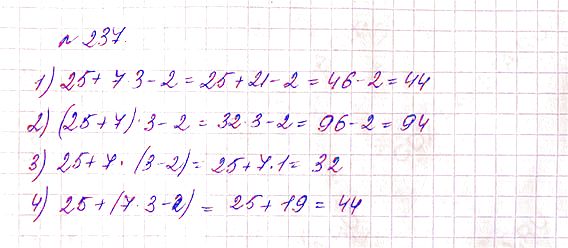 № 237.
1) 25 + 7 · 3 - 2 = 25 + 21 - 2 = 46 - 2 = 44
2) (25 + 7) · 3 - 2 = 32 · 3 - 2 = 96 - 2 = 94
3) 25 + 7 · (3 - 2) = 25 + 7 · 1 = 32
4) 25 + (7 · 3 - 2) = 25 + 19 = 44